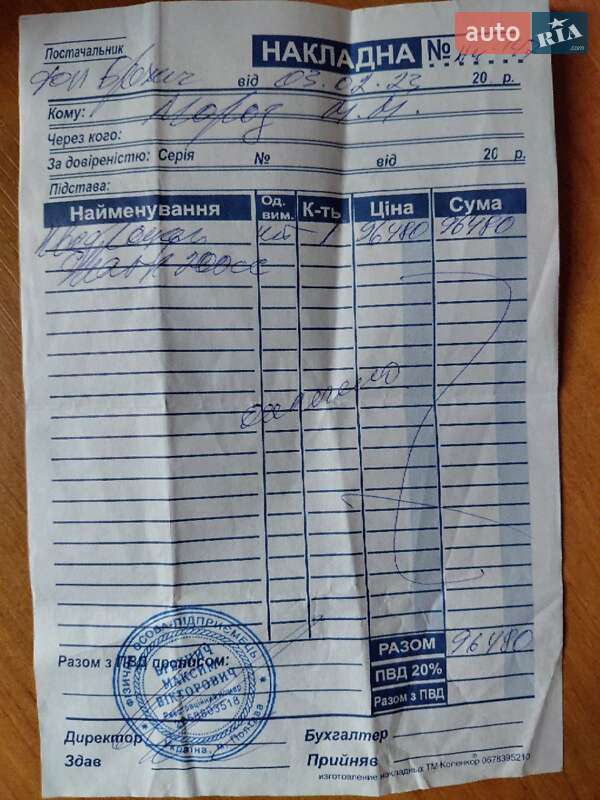 auto RIA.com
Постачальник НАКЛАДНА №
від 03.02.23 20 р.
Кому:
Через кого:
За довіреністю: Серія № від 20 р.
Підстава:
Найменування Од. вим. К-ть Ціна Сума
1 96480 96480
200сс
оплачено
РАЗОМ 96480
Разом з ПВД прописом:
ПВД 20%
Разом з ПВД
ФІЗИЧНА ОСОБА-ПІДПРИЄМЕЦЬ
МАКСИМ
ВІКТОРОВИЧ
Україна, м. Полтава
Директор Бухгалтер
Здав Прийняв
изготовление накладных ТМ Коленкор 0678395210